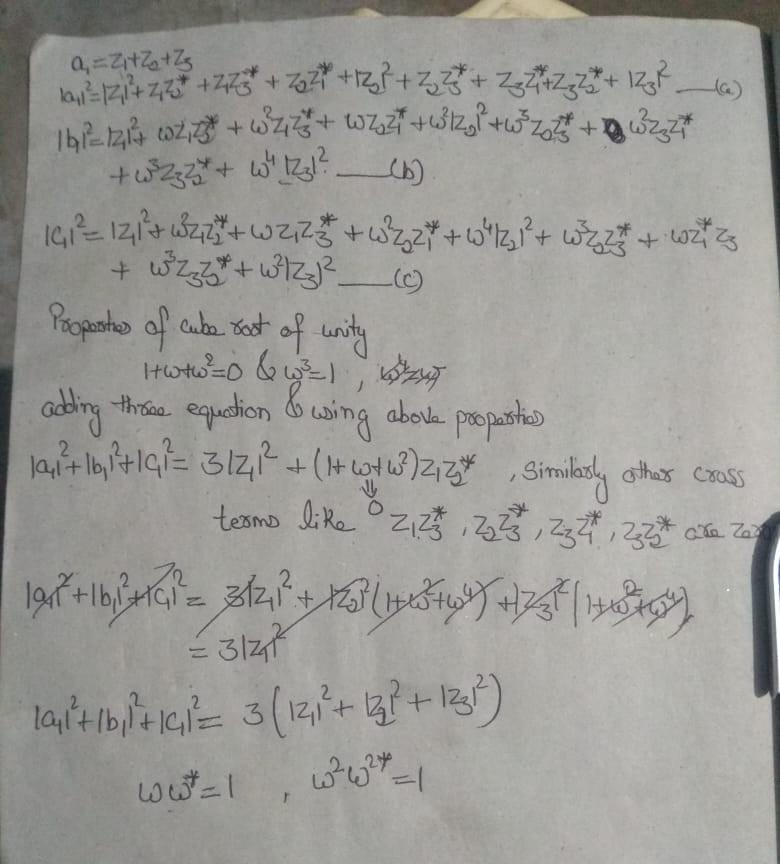 a₁=z₁+z₂+z₃
|a₁|²=|z₁|²+z₁z₂* + z₁z₃* + z₂z₁* + |z₂|² + z₂z₃* + z₃z₁*+z₃z₂* + |z₃|² —(a)
|b₁|²=|z₁|²+ ωz₁z₃* + ω²z₁z₃* + ωz₂z₁* + ω²|z₂|² + ω³z₂z₃* + ω²z₃z₁*
+ ω³z₃z₂* + ω⁴|z₃|² —(b)
|c₁|²= |z₁|²+ω²z₁z₂*+ωz₁z₃* + ω²z₂z₁*+ω⁴|z₂|²+ ω³z₂z₃* + ωz₁*z₃
+ ω³z₃z₂*+ω²|z₃|² —(c)
Properties of cube root of unity
1+ω+ω²=0 & ω³=1 ,
adding three equation & using above properties
|a₁|²+|b₁|²+|c₁|²= 3|z₁|² + (1+ω+ω²)z₁z₂* , similarly other cross
⇓
0
terms like z₁z₃*, z₂z₃*, z₃z₁*, z₃z₂* are zero
|a₁|²+|b₁|²+|c₁|²= 3|z₁|²+ |z₂|²(1+ω²+ω⁴) +|z₃|²(1+ω²+ω⁴)
= 3|z₁|²
|a₁|²+|b₁|²+|c₁|²= 3(|z₁|²+|z₂|²+|z₃|²)
ωω*=1 , ω²ω²*=1